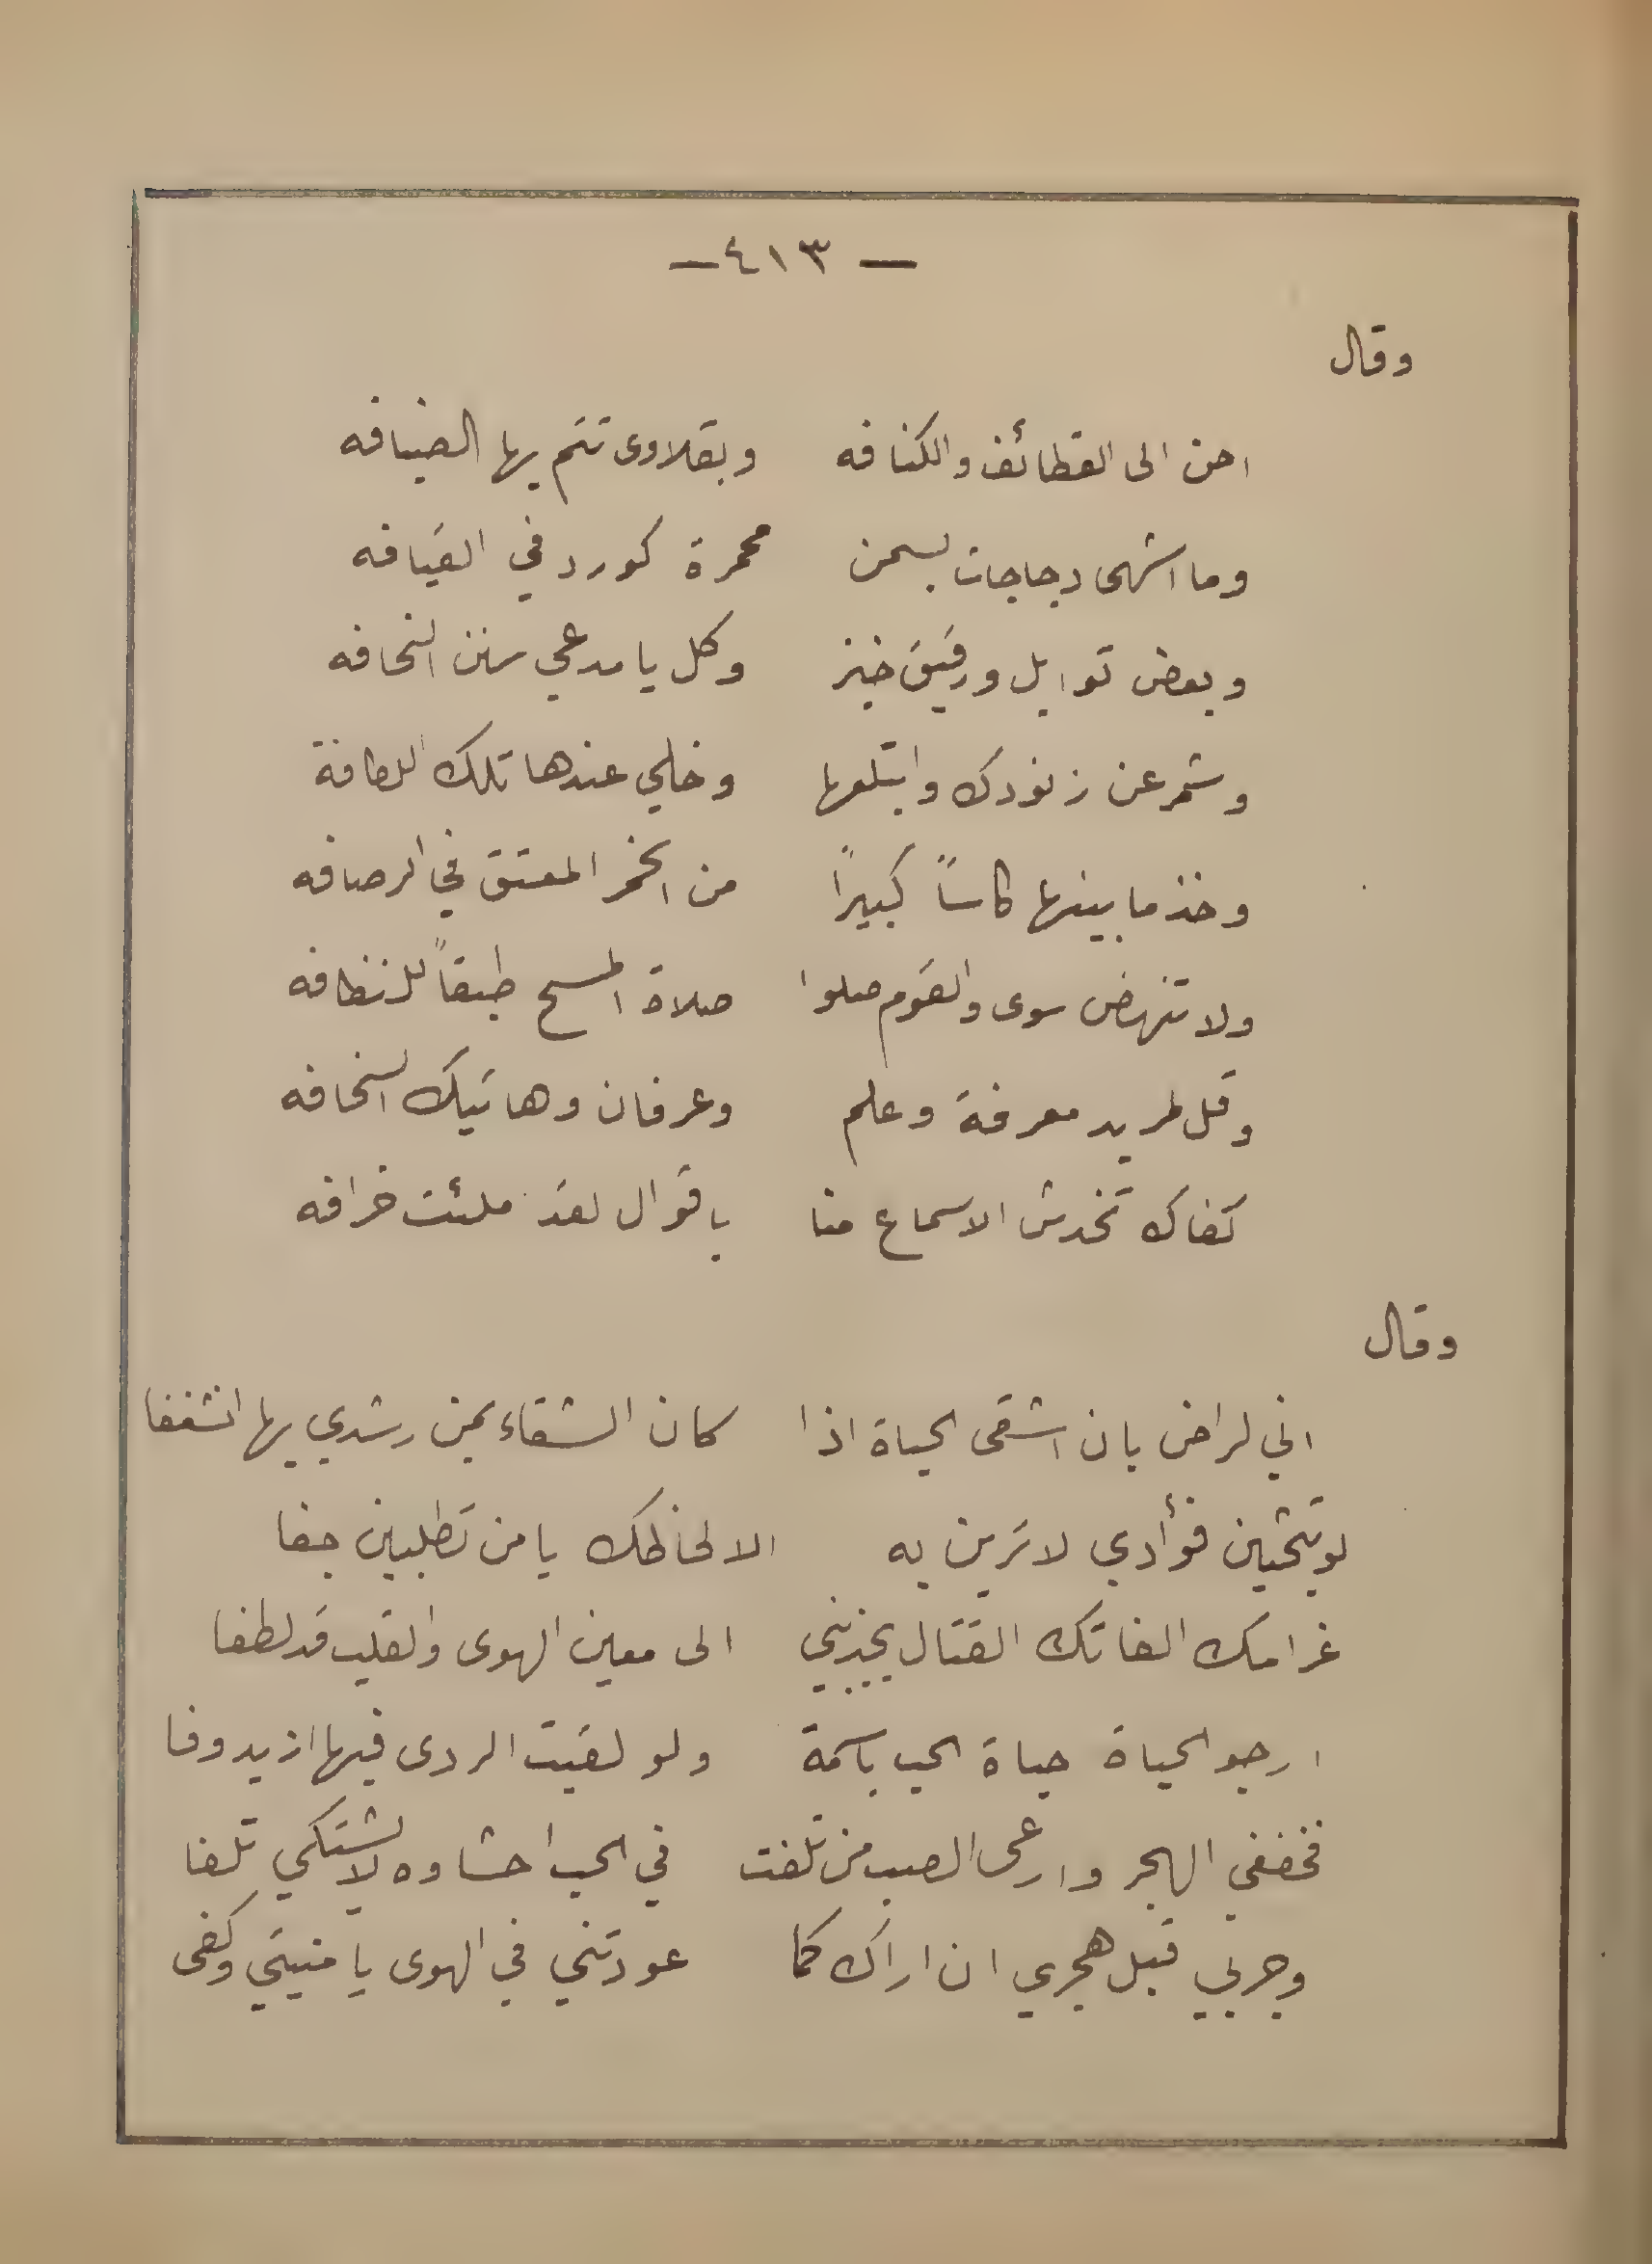 — ٤١٣ —
وقال
احن الى القطائف والكنافه وبقلاوى تتم بها الضيافه
وما اشهى دجاجات بسمن محمرة كورد في القيافه
وبعض توابل ورقيق خبز وكل يا مدعي سنن النحافه
وشمر عن زنودك وابتلعها وخلي عندها تلك اللطافة
وخذ ما بينها كاساً كبيراً من الخمر المعتق في الرصافه
ولا تنهض سوى والقوم صلوا صلاة المسح طبقاً للنظافه
وقل لمريد معرفة وعلم وعرفان وهاتيك السخافه
كفاك تخدش الاسماع منا باقوال لقد ملئت خرافه
وقال
اني لراض بان اشقى الحياة اذا كان الشقاء بمن رشدي بها انشغفا
لو تبحثين فؤادي لا ترين به الا لحاظك يا من تطلبين جفا
غرامك الفاتك القتال يجذبني الى معين الهوى والقلب قد لطفا
ارجو الحياة حياة الحب باسمة ولو لقيت الردى فيها ازيد وفا
فخففي الهجر وارعى الصب من تلفت في الحب احشاوه لا تشتكي تلفا
وجربي قبل هجري ان اراك كما عودتني في الهوى يا منيتي وكفى